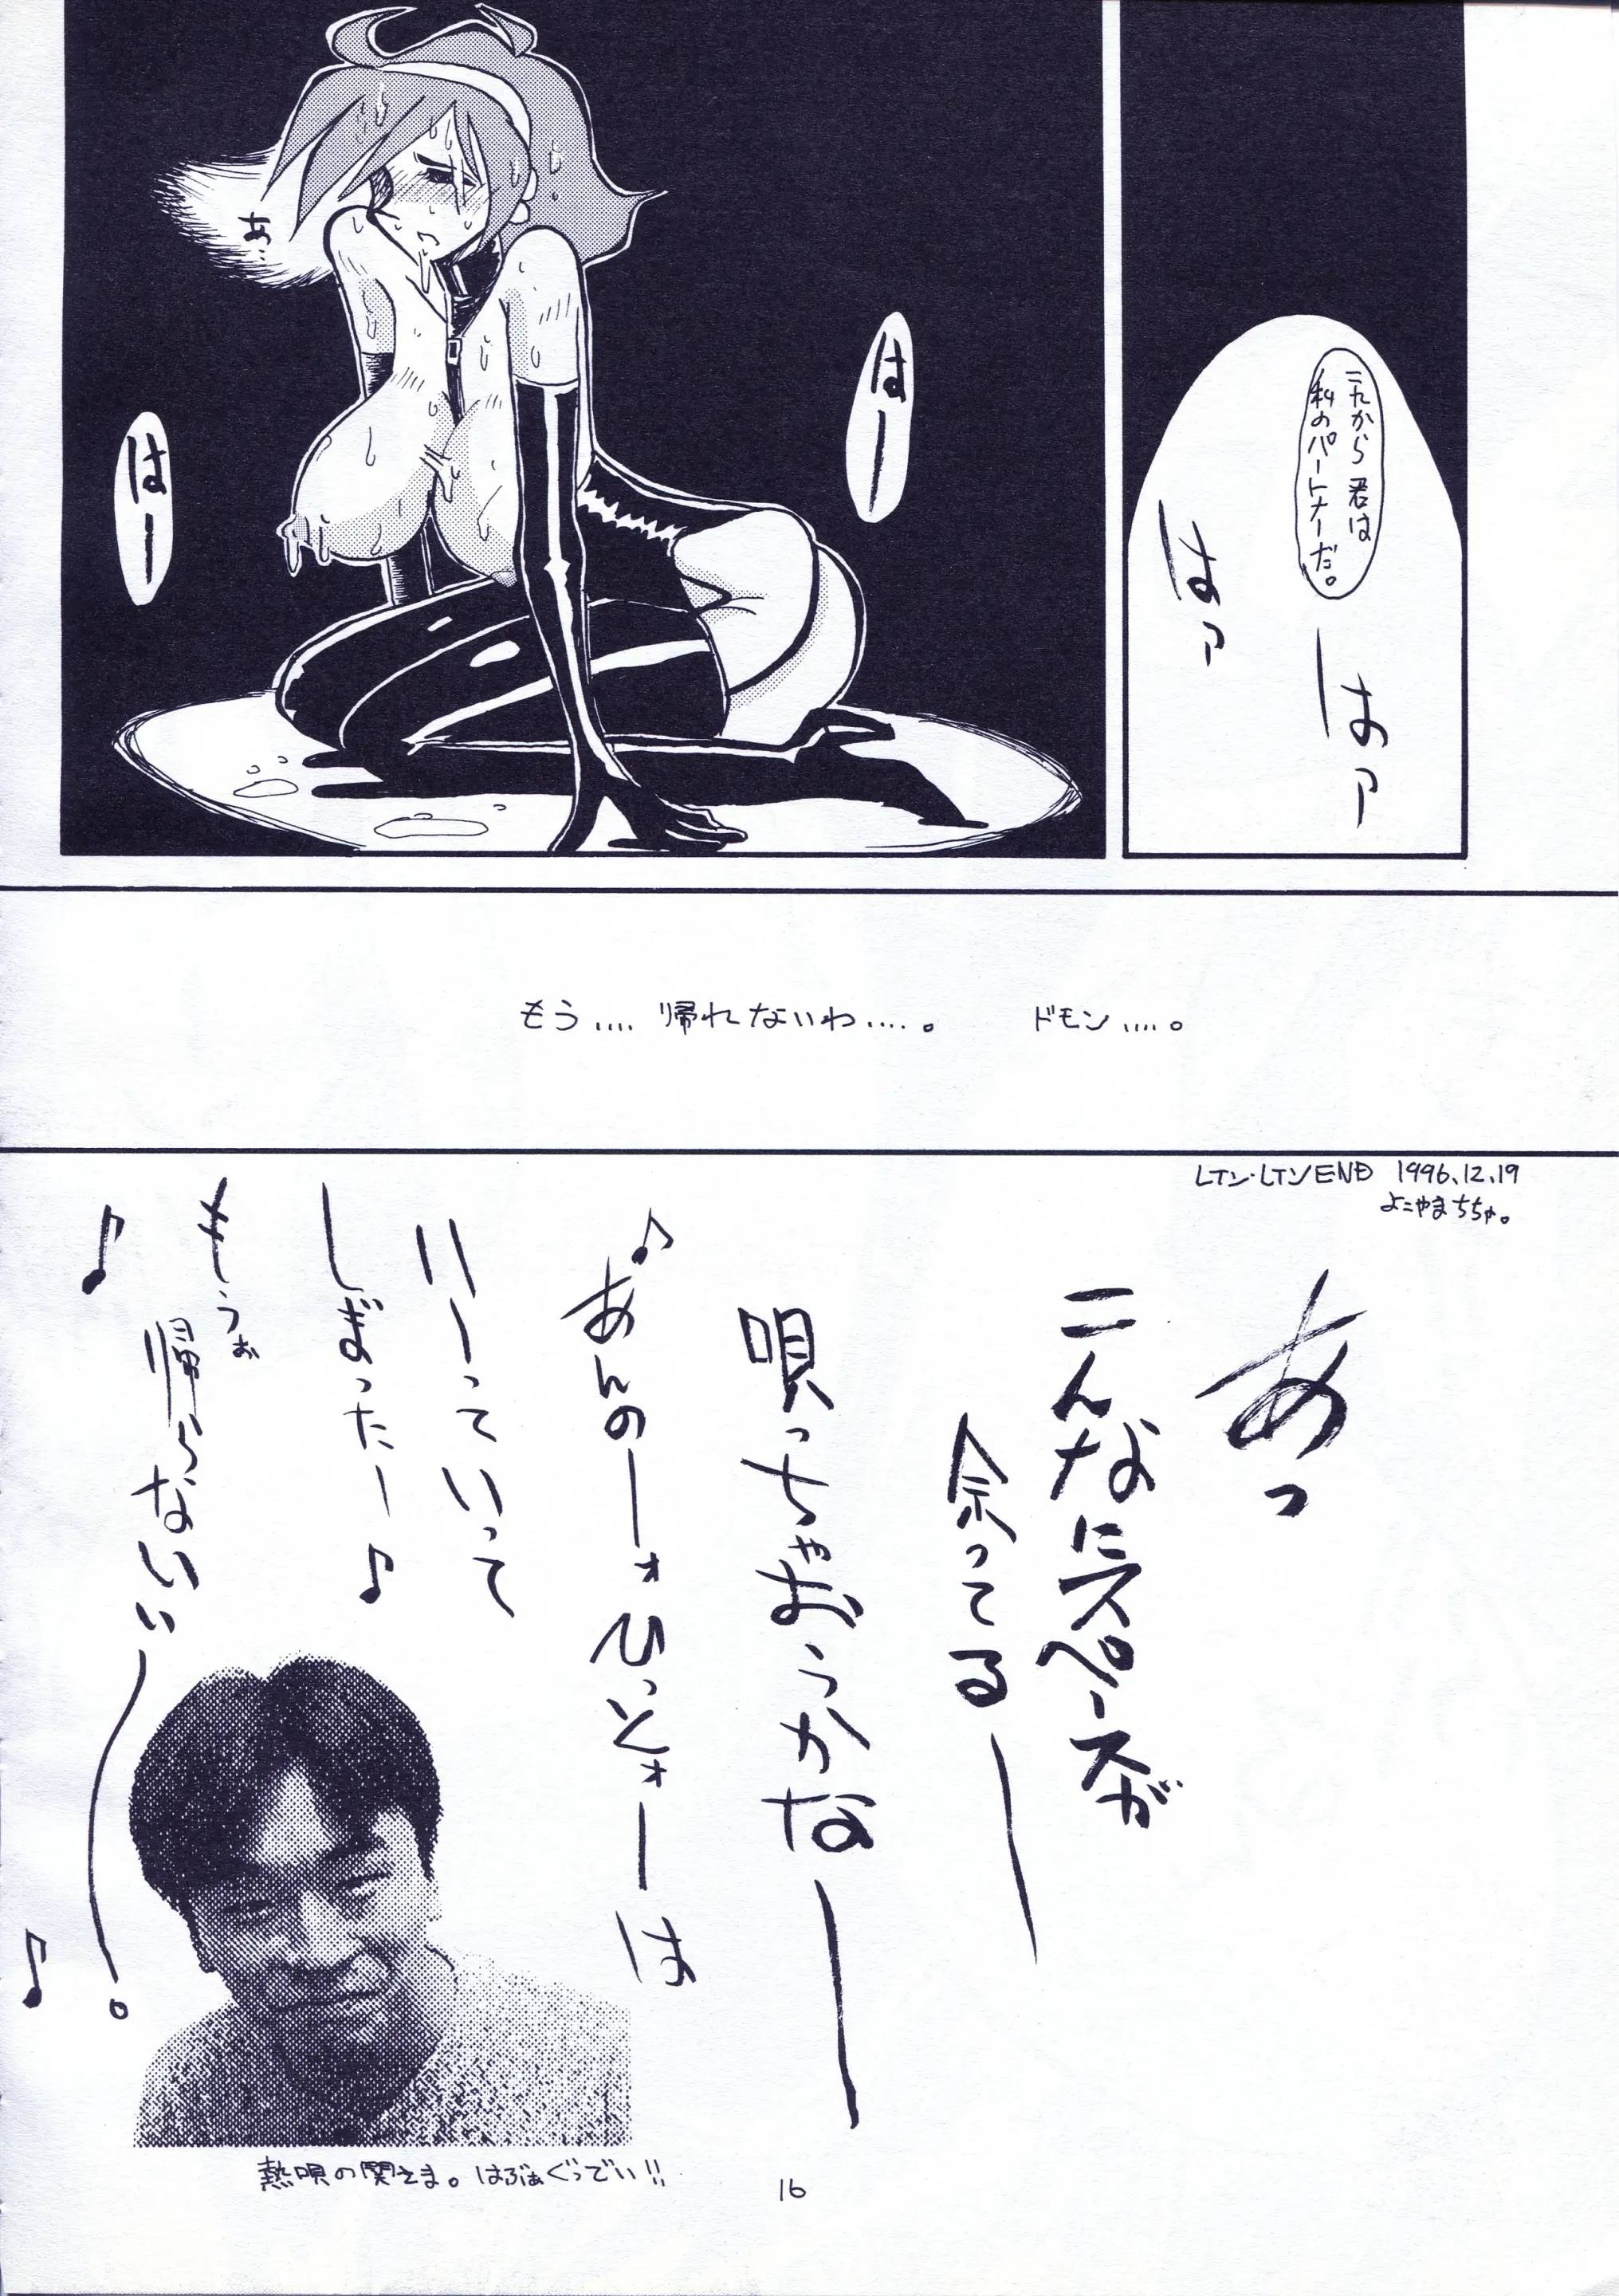 これから君は
私のパートナーだ。
はァ
はァ
はー
あ…
はー
もう....帰れないわ.....。 ドモン.....。
レイン・レインEND 1996.12.19
よこやまちちゃ。
あっ
こんなにスペースが
余ってるー
唄っちゃおうかなー
♪あんのーォひっとォーは
いーっていって
しまったー♪
もうぉ
帰らないいー。
♪
♪
熱唄の関さま。はぶぁぐっでい!!
16